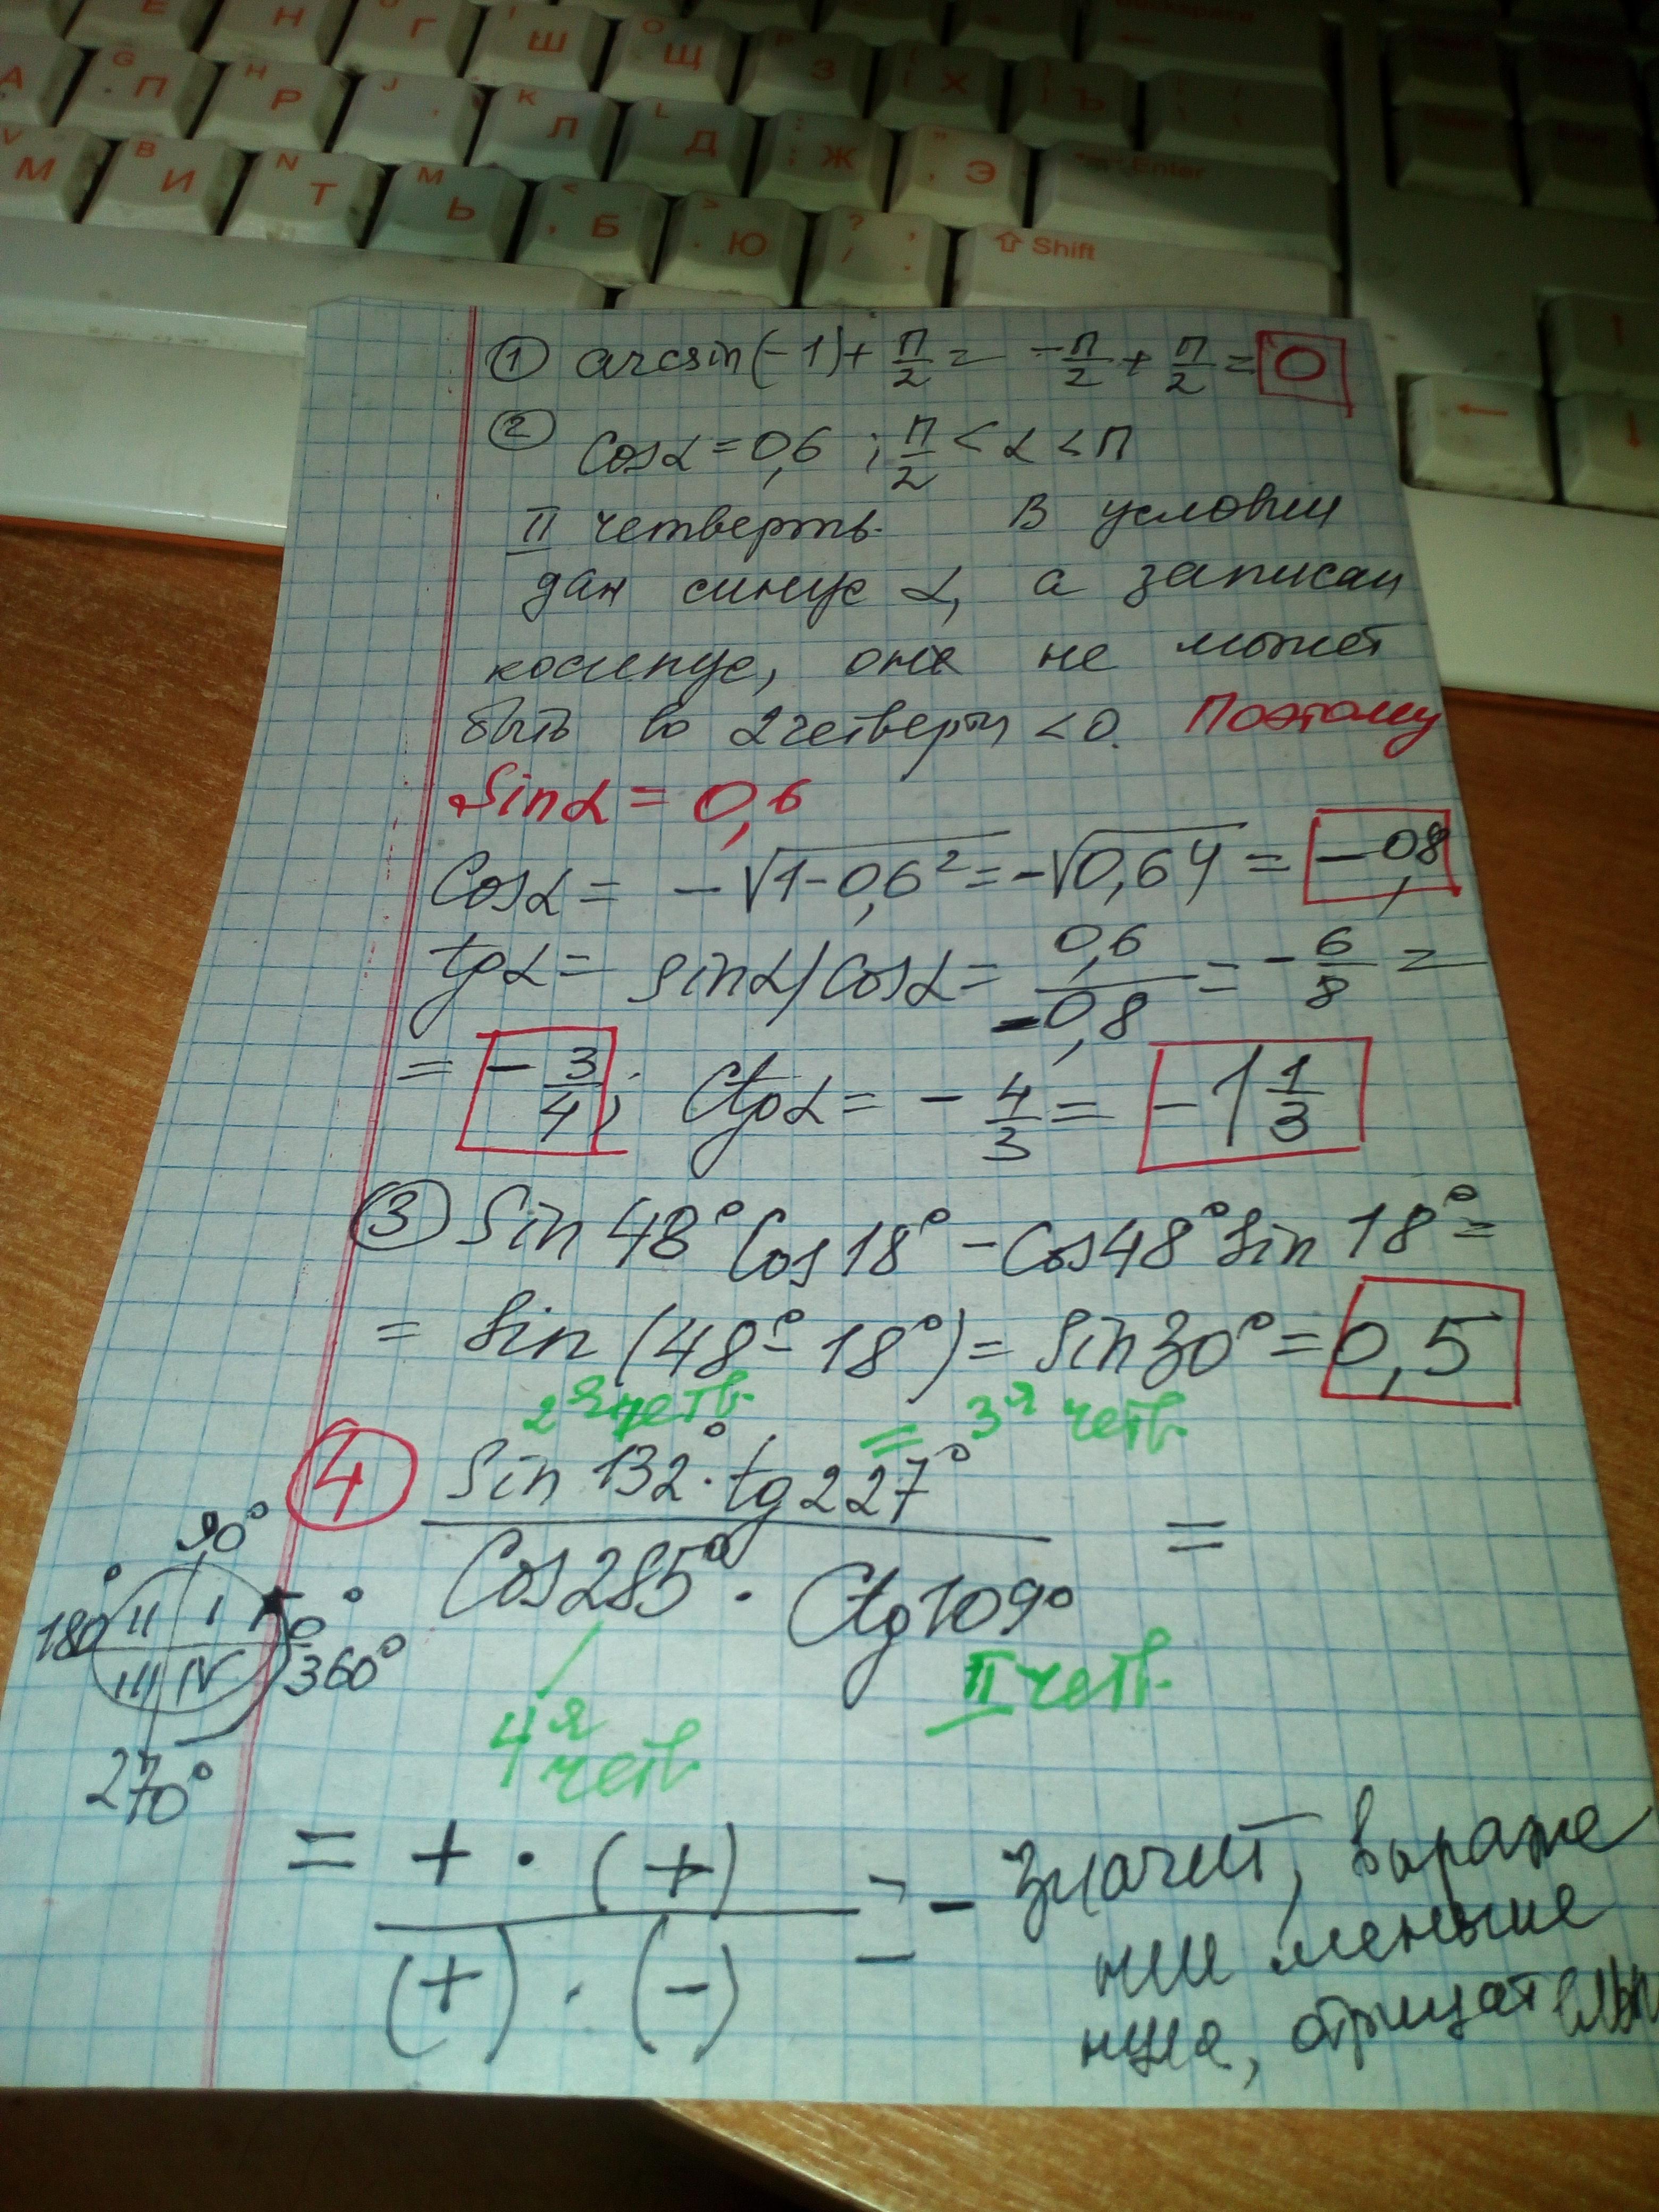 Е Н Г Ш O Щ З Х Ъ
А G П H Р J K Л L Д Ж Э Enter
V М B И N Т M Ь < Б > Ю ? / Shift
① arcsin(-1) + п/2 = -п/2 + п/2 = 0
② Cosα = 0,6 ; п/2 < α < п
II четверть. В условии
дан синус α, а записан
косинус, оне не может
быть во 2четверти <0. Поэтому
Sinα = 0,6
Cosα = -√(1-0,6²) = -√0,64 = -0,8
tgα = sinα/cosα = 0,6/-0,8 = -6/8 =
= -3/4; Ctgα = -4/3 = -1 1/3
③ Sin48° Cos18° - Cos48° Sin18° =
= Sin(48° - 18°) = Sin30° = 0,5
2я четв. = 3я четв.
④ Sin 132° · tg 227°
Cos 285° · Ctg 109° =
90°
180° II I 0°
III IV 360°
270°
4я четв. II четв.
= + · (+)
(+) · (-) = - Значит, выраже
ние меньше
нуля, отрицательн